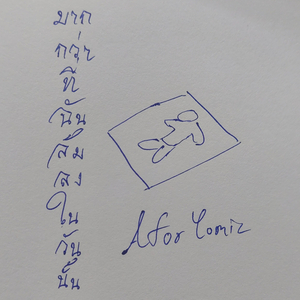 มาก
กว่า
ที่
ฉัน
ลืม
ลง
ใน
วัน
นั้น
A for Yomiz